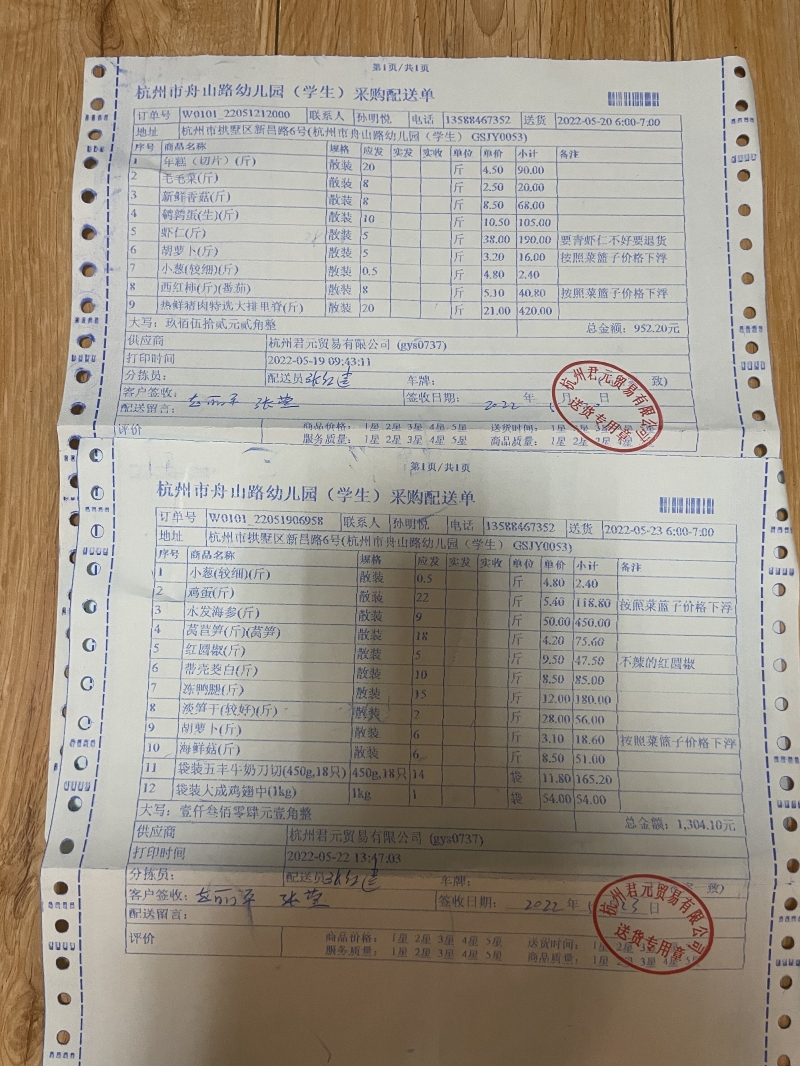 第1页/共1页
杭州市舟山路幼儿园（学生）采购配送单
订单号 W0101_22051212000 联系人 孙明悦 电话 13588467352 送货 2022-05-20 6:00-7:00
地址 杭州市拱墅区新昌路6号(杭州市舟山路幼儿园（学生） GSJY0053)
序号 商品名称 规格 应发 实发 实收 单位 单价 小计 备注
1 年糕（切片）(斤) 散装 20 斤 4.50 90.00
2 毛毛菜(斤) 散装 8 斤 2.50 20.00
3 新鲜香菇(斤) 散装 8 斤 8.50 68.00
4 鹌鹑蛋(生)(斤) 散装 10 斤 10.50 105.00
5 虾仁(斤) 散装 5 斤 38.00 190.00 要青虾仁不好要退货
6 胡萝卜(斤) 散装 5 斤 3.20 16.00 按照菜篮子价格下浮
7 小葱(较细)(斤) 散装 0.5 斤 4.80 2.40
8 西红柿(斤)(番茄) 散装 8 斤 5.10 40.80 按照菜篮子价格下浮
9 热鲜猪肉特选大排里脊(斤) 散装 20 斤 21.00 420.00
大写：玖佰伍拾贰元贰角整 总金额：952.20元
供应商 杭州君元贸易有限公司 (gys0737)
打印时间 2022-05-19 09:43:11
分拣员： 配送员 张红 车牌： 致)
客户签收： 签收日期： 2022 年 月
配送留言：
评价 商品价格： 1星 2星 3星 4星 5星 送货时间： 1星 2星 3星 4星 5星
服务质量： 1星 2星 3星 4星 5星 商品质量： 1星 2星 3星 4星
杭州君元贸易有限公司
送货专用章
第1页/共1页
杭州市舟山路幼儿园（学生）采购配送单
订单号 W0101_22051906958 联系人 孙明悦 电话 13588467352 送货 2022-05-23 6:00-7:00
地址 杭州市拱墅区新昌路6号(杭州市舟山路幼儿园（学生） GSJY0053)
序号 商品名称 规格 应发 实发 实收 单位 单价 小计 备注
1 小葱(较细)(斤) 散装 0.5 斤 4.80 2.40
2 鸡蛋(斤) 散装 22 斤 5.40 118.80 按照菜篮子价格下浮
3 水发海参(斤) 散装 9 斤 50.00 450.00
4 莴苣笋(斤)(莴笋) 散装 18 斤 4.20 75.60
5 红圆椒(斤) 散装 5 斤 9.50 47.50 不辣的红圆椒
6 带壳茭白(斤) 散装 10 斤 8.50 85.00
7 冻鸭腿(斤) 散装 15 斤 12.00 180.00
8 淡笋干(较好)(斤) 散装 2 斤 28.00 56.00
9 胡萝卜(斤) 散装 6 斤 3.10 18.60 按照菜篮子价格下浮
10 海鲜菇(斤) 散装 6 斤 8.50 51.00
11 袋装五丰牛奶刀切(450g,18只) 450g,18只 14 袋 11.80 165.20
12 袋装大成鸡翅中(1kg) 1kg 1 袋 54.00 54.00
大写：壹仟叁佰零肆元壹角整 总金额：1,304.10元
供应商 杭州君元贸易有限公司 (gys0737)
打印时间 2022-05-22 13:47:03
分拣员： 配送员 张红 车牌： 致)
客户签收： 签收日期： 2022 年 23 日
配送留言：
评价 商品价格： 1星 2星 3星 4星 5星 送货时间： 1星 2星 3星 4星 5星
服务质量： 1星 2星 3星 4星 5星 商品质量： 1星 3星 4星 5星
杭州君元贸易有限公司
送货专用章